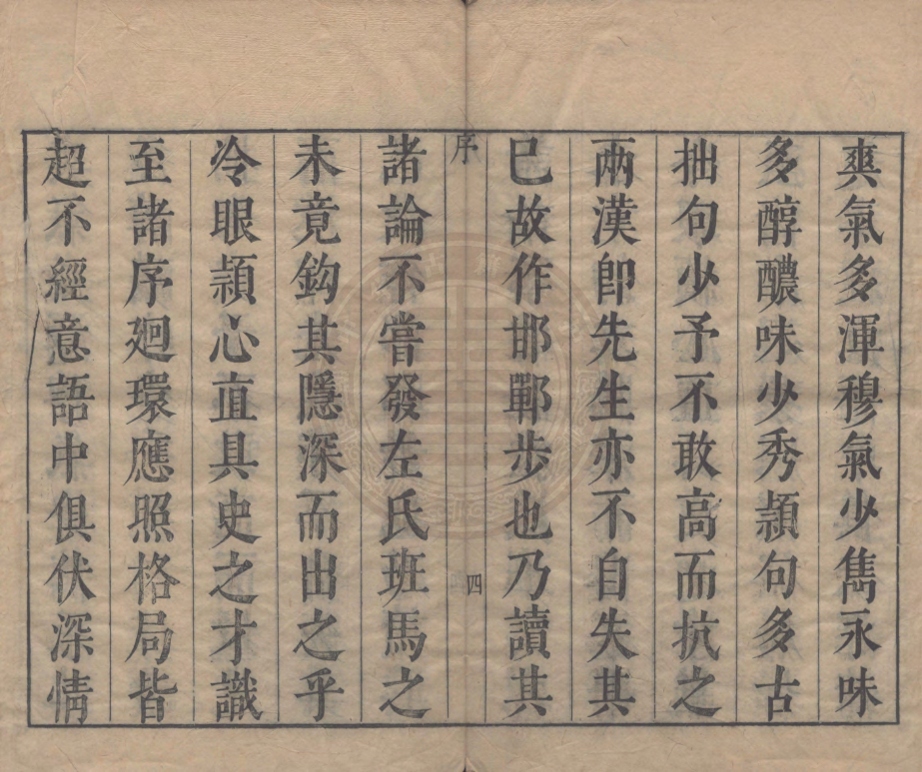 爽氣多渾穆氣少雋永味
多醇醲味少秀頴句多古
拙句少予不敢高而抗之
兩漢卽先生亦不自失其
已故作邯鄲步也乃讀其
序
四
諸論不嘗發左氏班馬之
未竟鈎其隱深而出之乎
冷眼頴心直具史之才識
至諸序廻環應照格局皆
超不經意語中俱伏深情